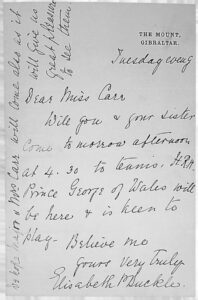 THE MOUNT,
GIBRALTAR.
Tuesday eveng
Dear Miss Carr
Will you & your sister
come to morrow afternoon
at 4.30 to tennis. H.R.H.
Prince George of Wales will
be here & is keen to
play. Believe me
yours very truly
Elisabeth Buckle.
Major & Miss Carr will come also as it
will give us
great pleasure
to see them